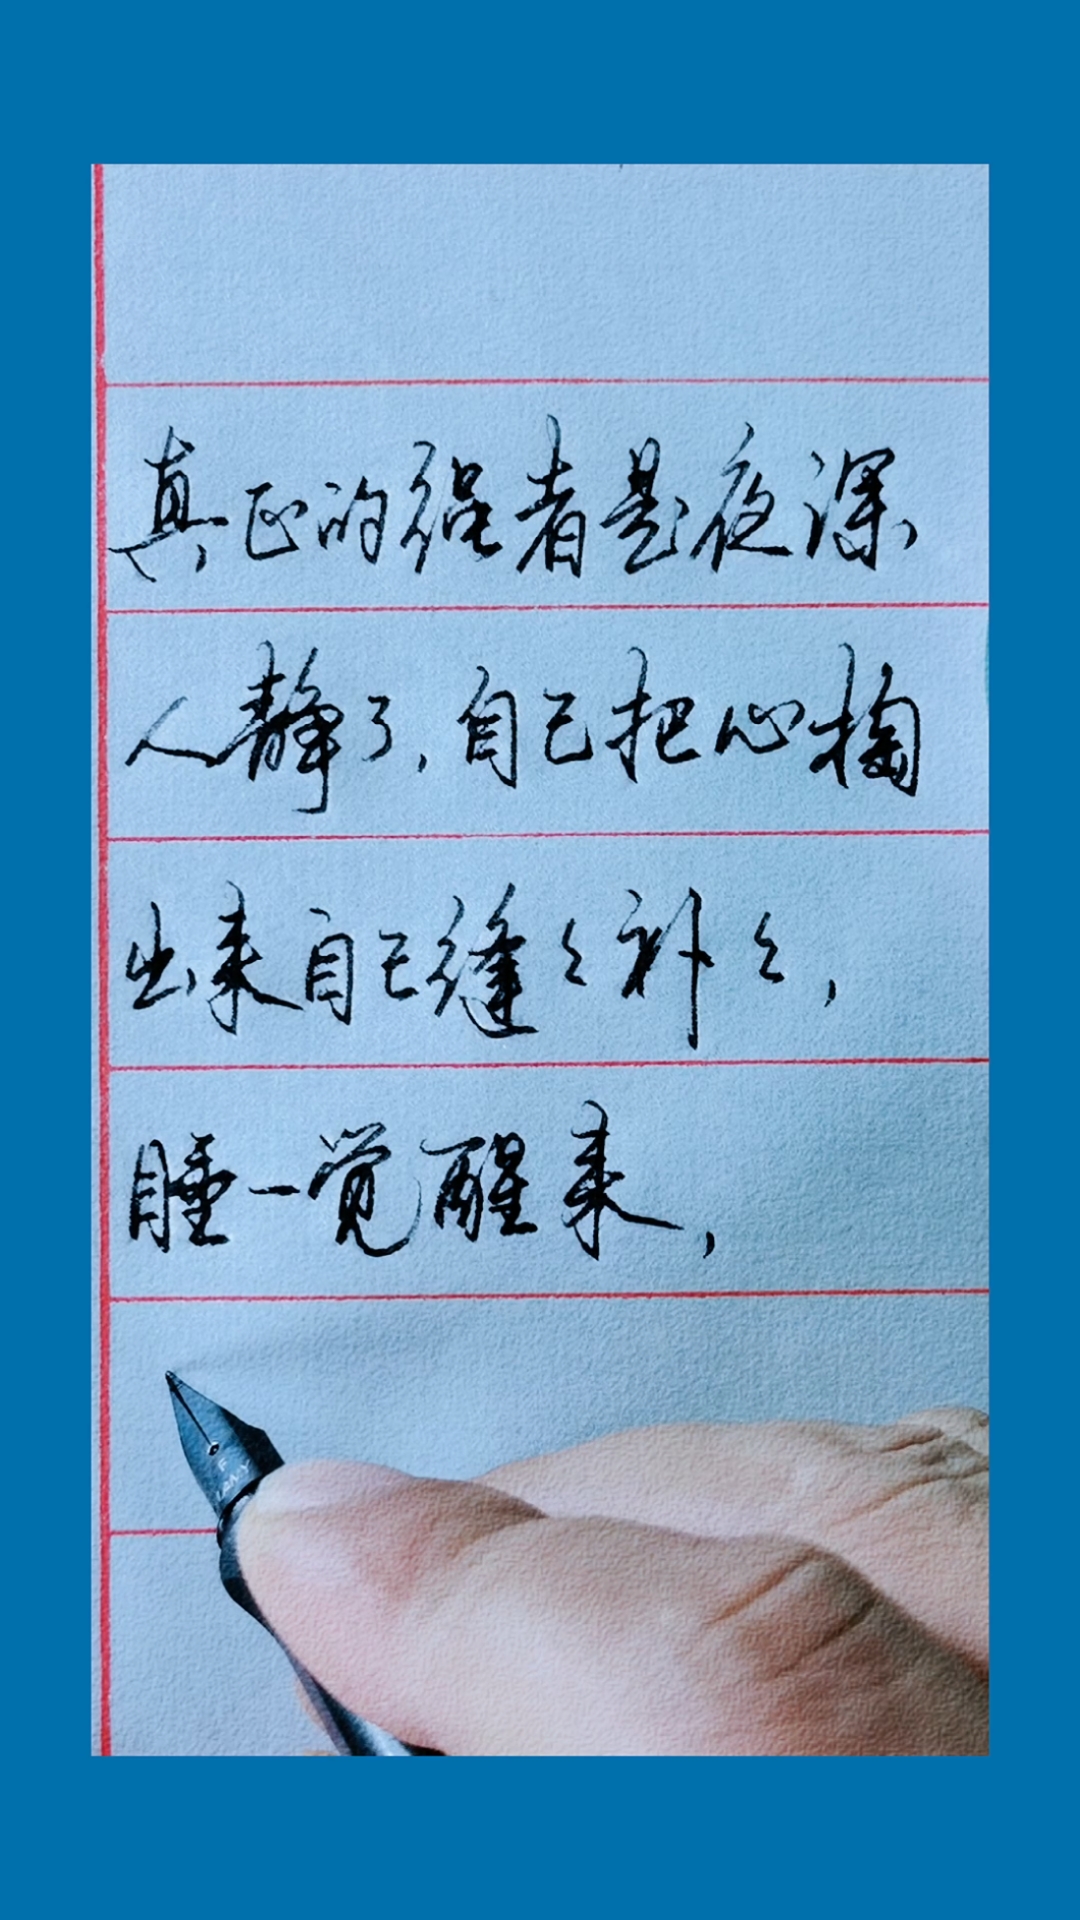 真正的强者是夜深
人静了,自己把心掏
出来自己缝々补々,
睡一觉醒来,
F
LAMY